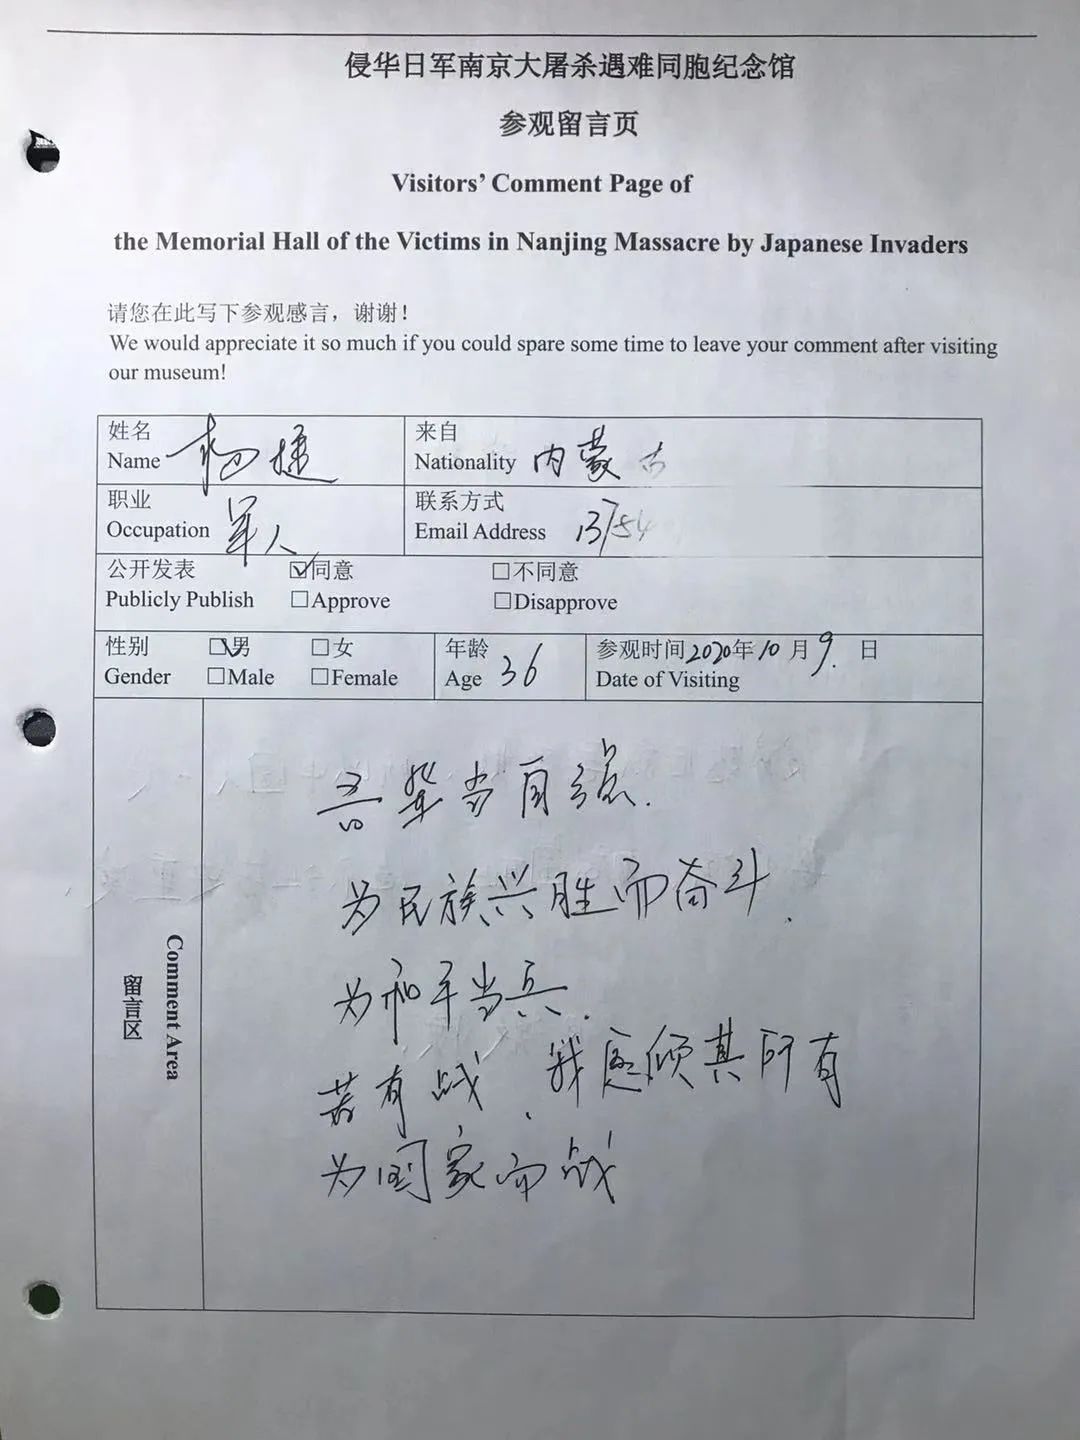 侵华日军南京大屠杀遇难同胞纪念馆
参观留言页
Visitors' Comment Page of
the Memorial Hall of the Victims in Nanjing Massacre by Japanese Invaders
请您在此写下参观感言，谢谢！
We would appreciate it so much if you could spare some time to leave your comment after visiting
our museum!
姓名
Name 杨捷
来自
Nationality 内蒙古
职业
Occupation 军人
联系方式
Email Address 13754
公开发表 ☑同意 □不同意
Publicly Publish □Approve □Disapprove
性别 ☑男 □女
Gender □Male □Female
年龄
Age 36
参观时间2020年10月9.日
Date of Visiting
留言区
Comment Area
吾辈当自强.
为民族兴胜而奋斗.
为和平当兵.
若有战,我愿倾其所有
为国家而战